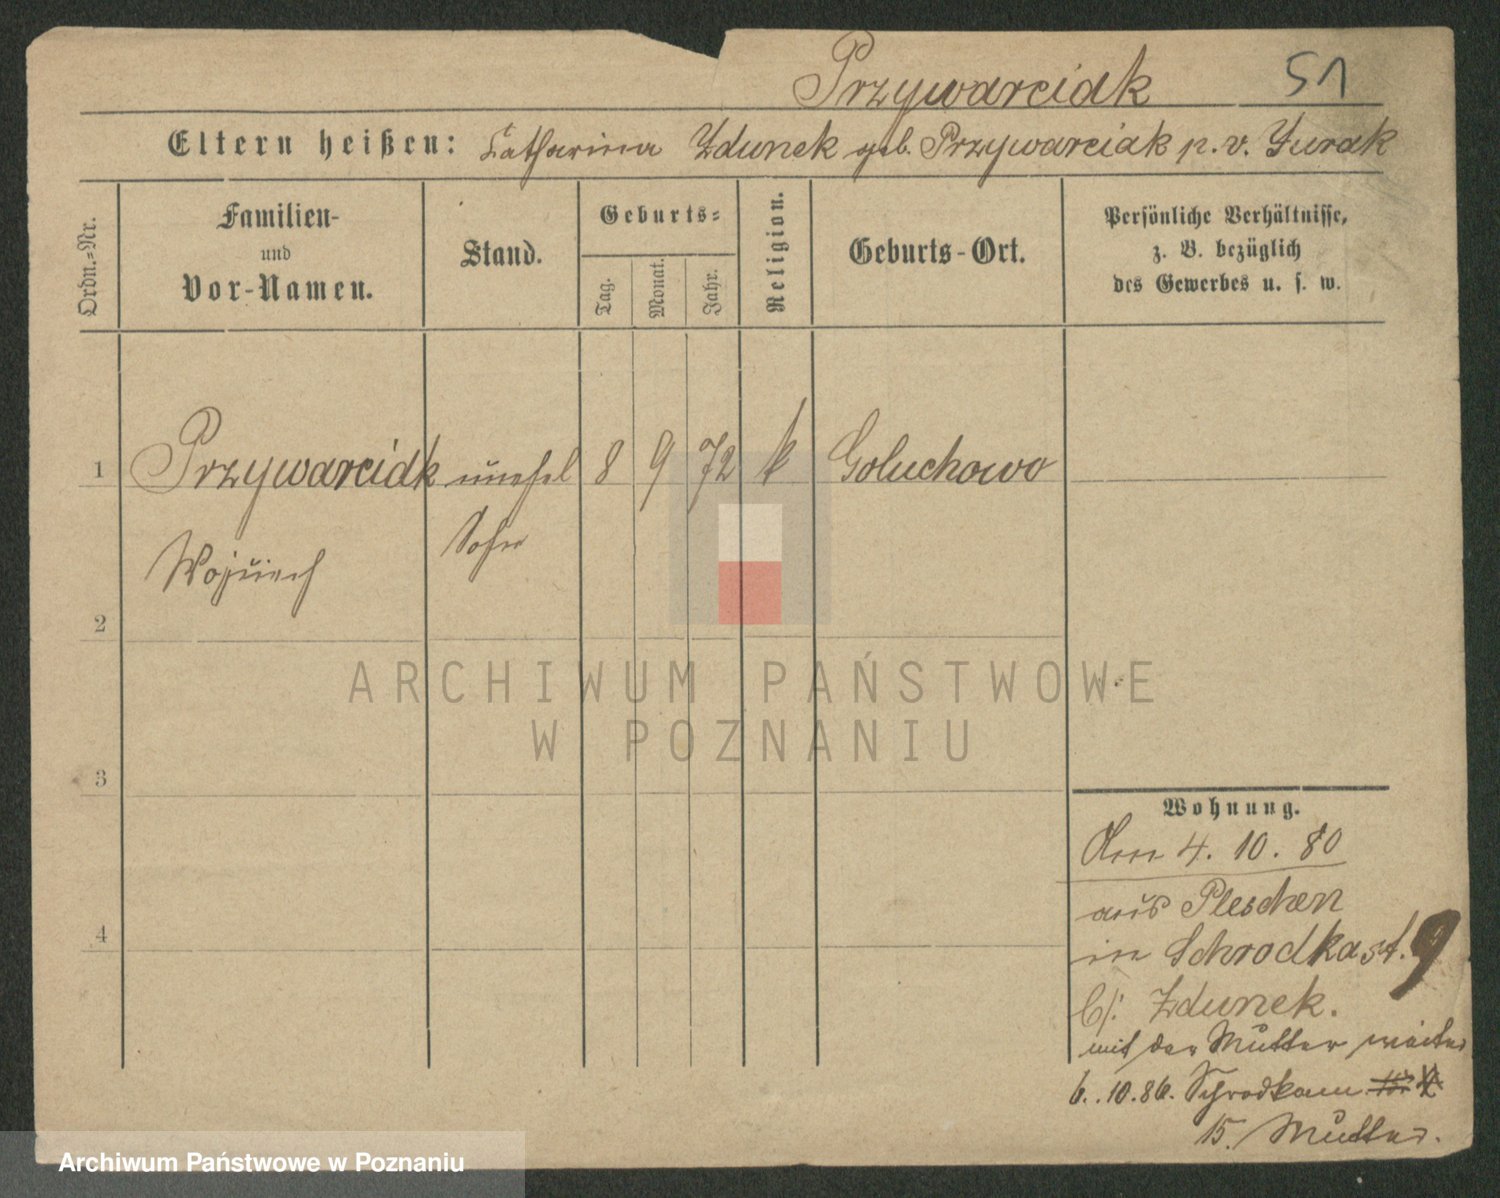 Przywarciak 51
Eltern heißen: Catharina Zdunek geb. Przywarciak p. v. Jurak
Ordn.-Nr.
Familien-
und
Vor-Namen.
Stand.
Geburts-
Tag.
Monat.
Jahr.
Religion.
Geburts-Ort.
Persönliche Verhältnisse,
z. B. bezüglich
des Gewerbes u. s. w.
1 Przywarciak unehel 8 9 72 k Goluchowo
Wojciech Sohn
2
3
4
Wohnung.
Am 4. 10. 80
aus Pleschen
in Schrodkast. 9
b/: Zdunek.
mit der Mutter weiter
6. 10. 86. Schrodkam
15. Mutter.
ARCHIWUM PAŃSTWOWE
W POZNANIU
Archiwum Państwowe w Poznaniu